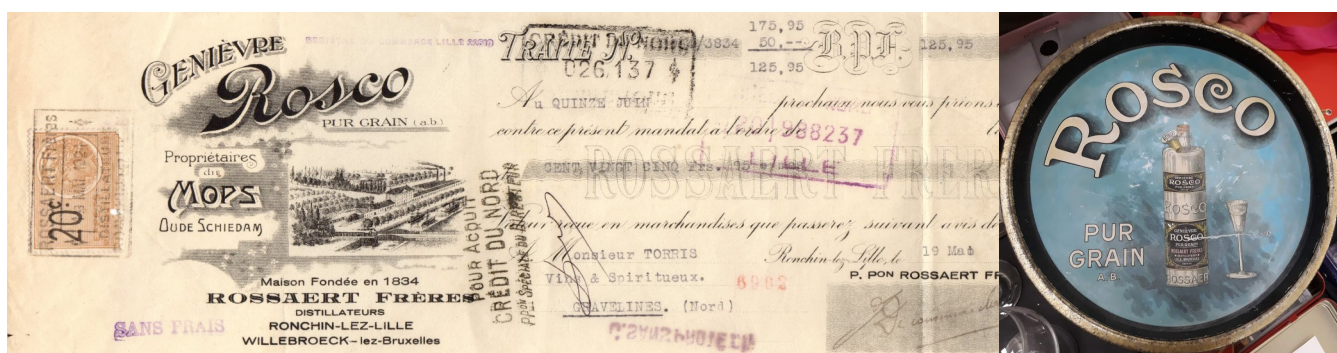 GENIÈVRE
Rosco
PUR GRAIN (a.b.)
Propriétaires
du
MOPS
OUDE SCHIEDAM
Maison Fondée en 1834
ROSSAERT FRÈRES
DISTILLATEURS
RONCHIN-LEZ-LILLE
WILLEBROECK-lez-Bruxelles
SANS FRAIS
20c
POUR ACQUIT
CRÉDIT DU NORD
TRAITE No
CRÉDIT DU NORD
026.137
/3834
175,95
50,--
125,95
B.P.F.
125,95
Au QUINZE JUIN prochain, nous vous prions
contre ce présent mandat, à l'ordre de
988237
LILLE
CENT VINGT CINQ Frs. 95
ROSSAERT FRÈR
reçue en marchandises que passerez, suivant avis de
Monsieur TORRIS
Vins & Spiritueux.
GRAVELINES. (Nord)
Ronchin-lez-Lille, le 19 Mai
P. PON ROSSAERT FR
ROSCO
PUR
GRAIN
A.B.
ROSCO
ROSCO
GENIÈVRE
ROSCO
PUR GRAIN
ROSSAERT FRÈRES
ROSSAERT